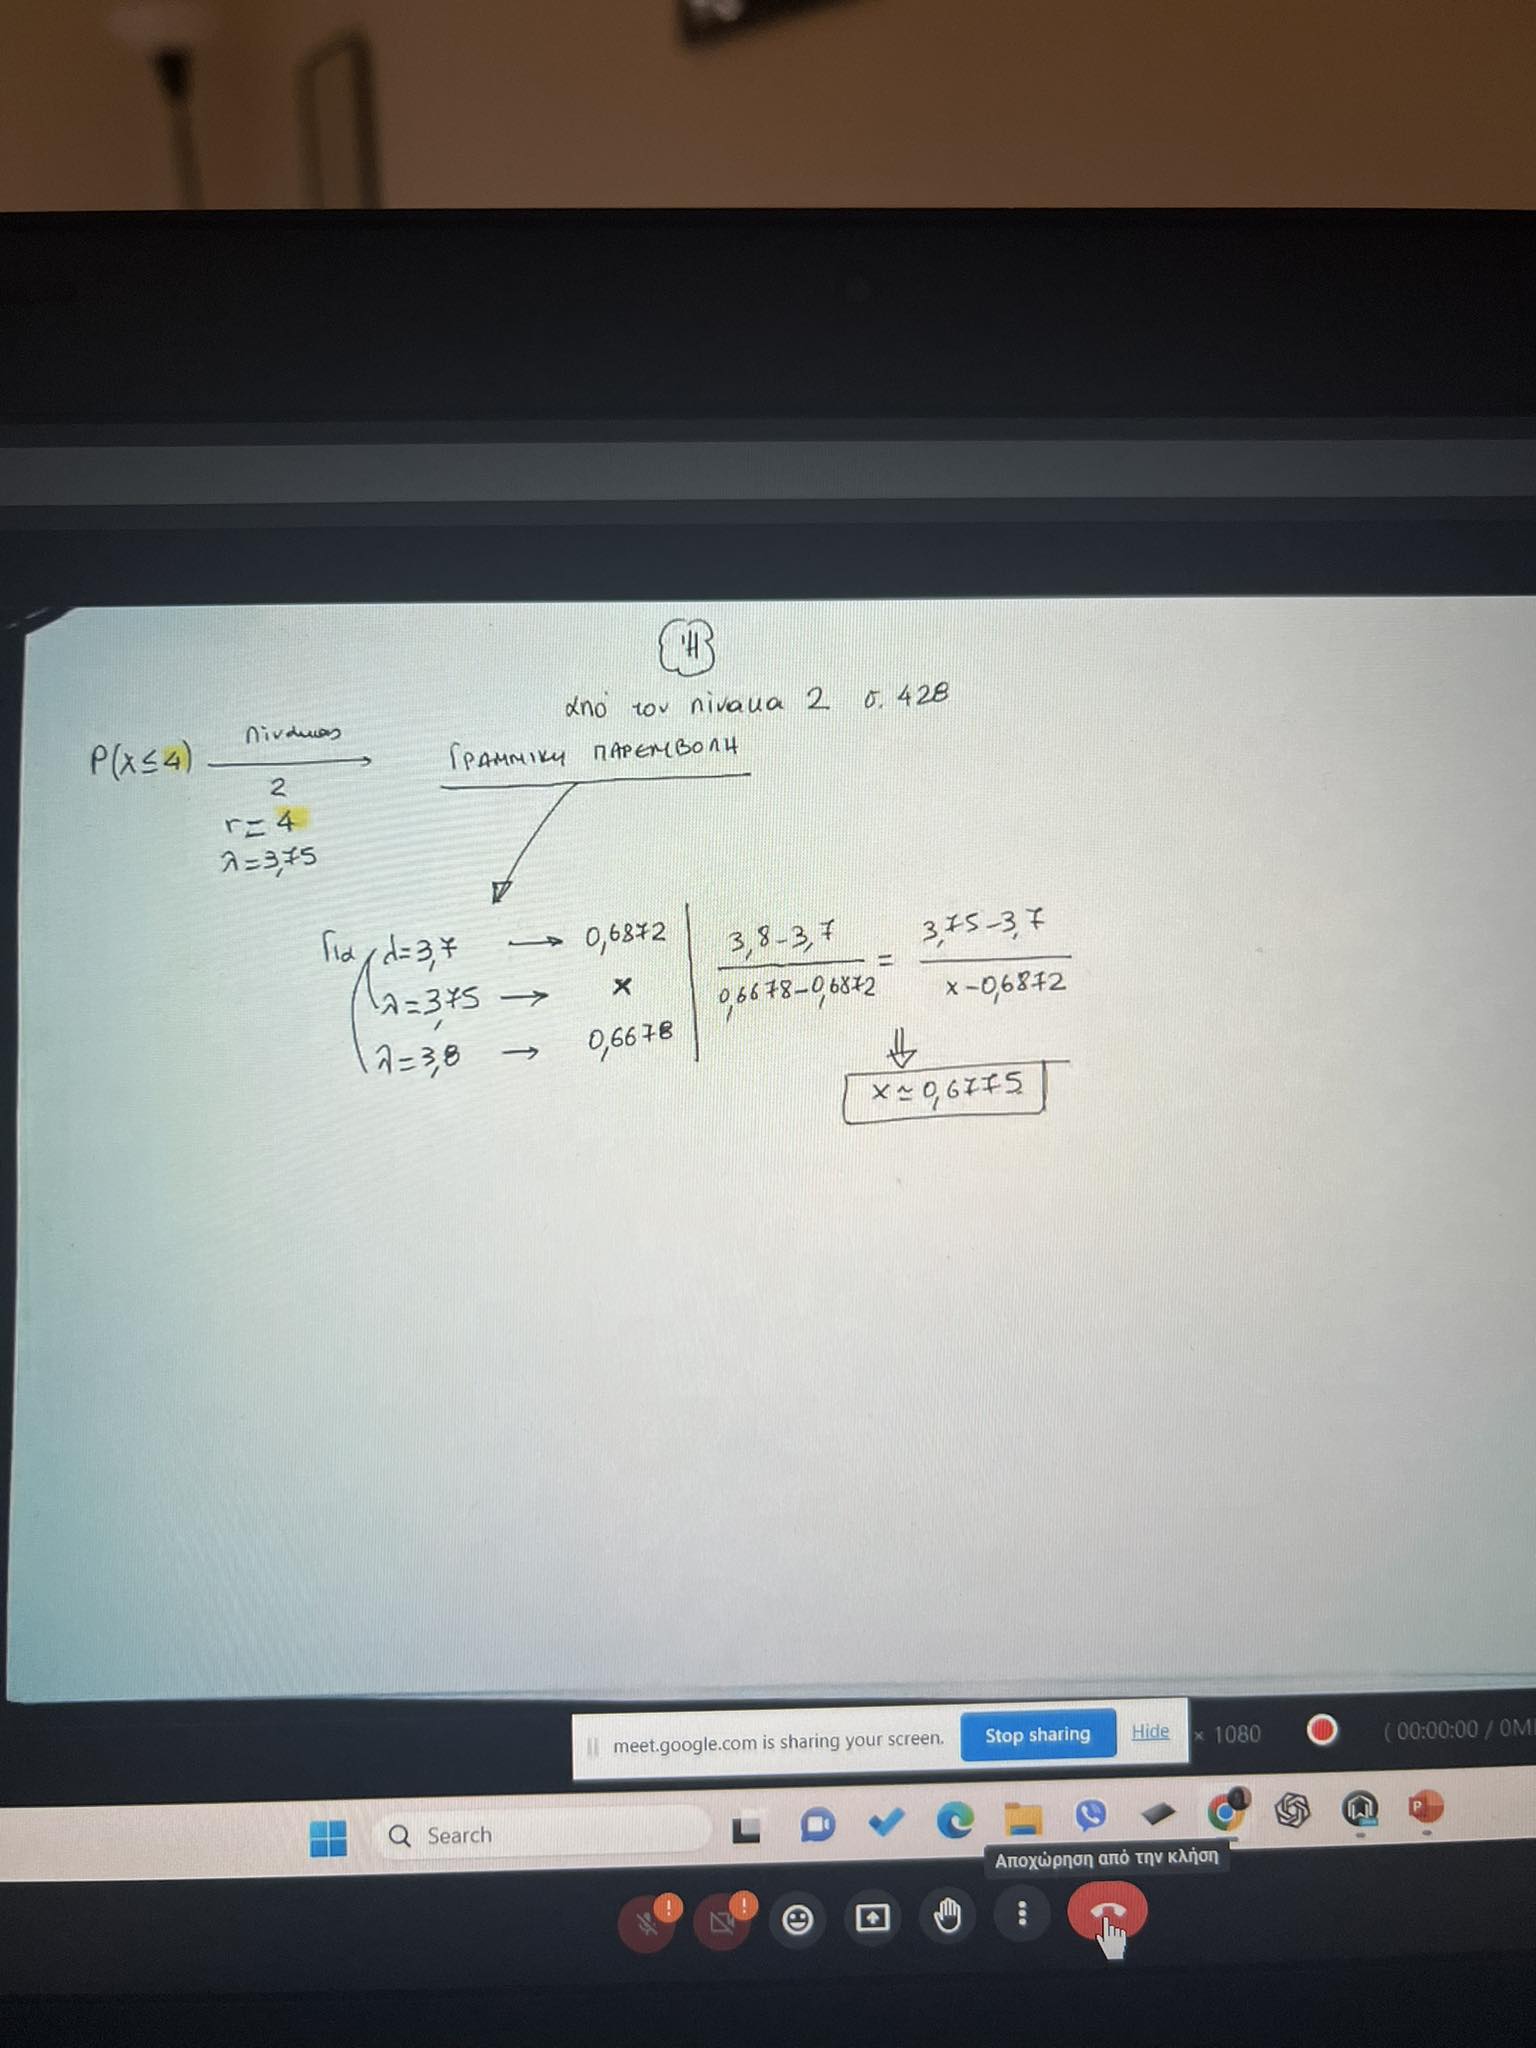 Ή
από τον πίνακα 2 σ. 428
P(x≤4) Πίνακας ΓΡΑΜΜΙΚΗ ΠΑΡΕΜΒΟΛΗ
2
r=4
λ=3,75
Για λ=3,7 → 0,6872
λ=3,75 → x
λ=3,8 → 0,6678
3,8-3,7 = 3,75-3,7
0,6678-0,6872 x-0,6872
⇓
x≃0,6775
meet.google.com is sharing your screen. Stop sharing Hide × 1080 ( 00:00:00 / 0M
Search
Αποχώρηση από την κλήση